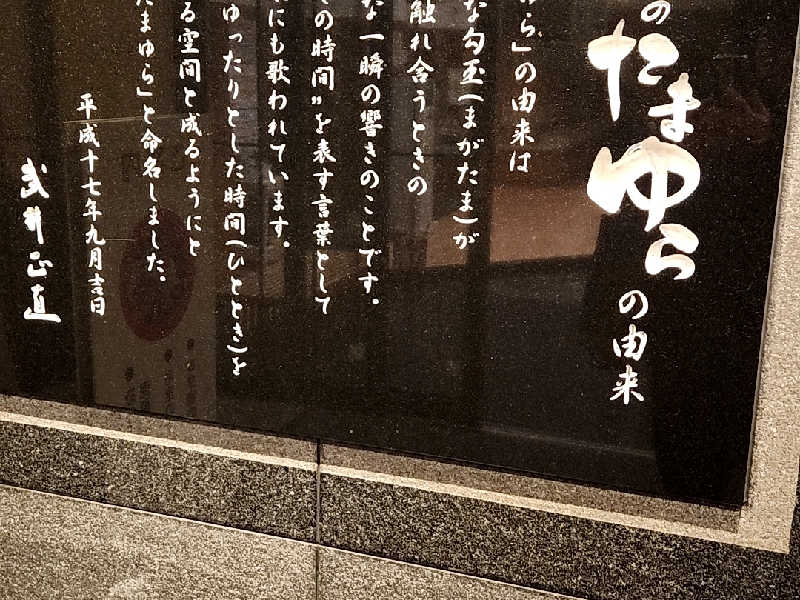 の
たまゆら
の由来
ゆら」の由来は
な勾玉(まがたま)が
触れ合うときの
な一瞬の響きのことです。
の時間"を表す言葉として
にも歌われています。
ゆったりとした時間(ひととき)を
る空間と成るようにと
たまゆら」と命名しました。
平成十七年九月吉日
武井正直